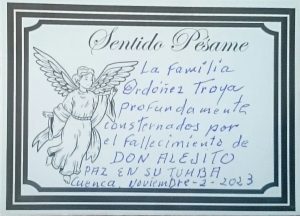 Sentido Pésame
La Familia
Ordóñez Troya
profundamente
consternados por
el fallecimiento de
DON ALEJITO
PAZ EN SU TUMBA
Cuenca, Noviembre-2-2023